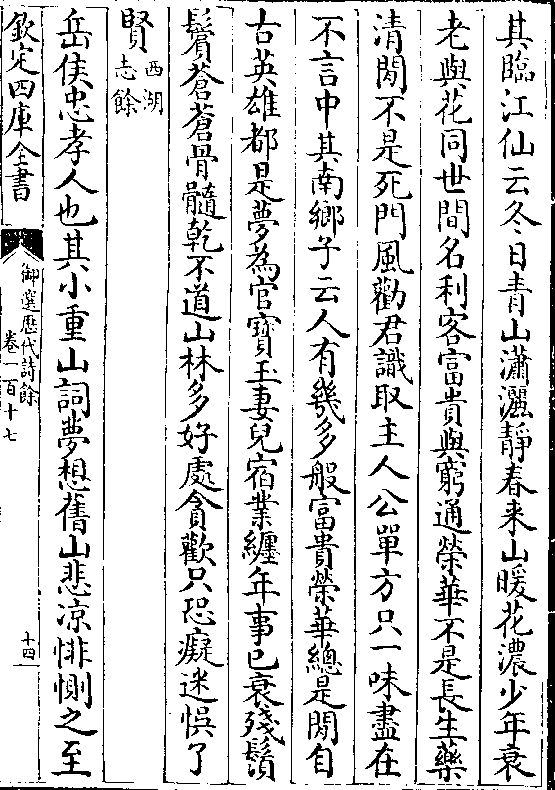 其臨江仙云冬日青山瀟灑靜春来山暖花濃少年衰
老與花同世間名利客富貴與窮通榮華不是長生藥
清閒不是死門風勸君識取主人公單方只一味盡在
不言中其南鄉子云人有幾多般富貴榮華總是閒自
古英雄都是夢為官寳玉妻兒宿業纒年事已衰殘鬚
鬢蒼蒼骨髓乾不道山林多好處貪歡只恐癡迷悞了
賢西湖
志餘
岳侯忠孝人也其小重山詞夢想舊山悲凉悱惻之至
欽定四庫全書
御選歴代詩餘
卷一百十七
十四